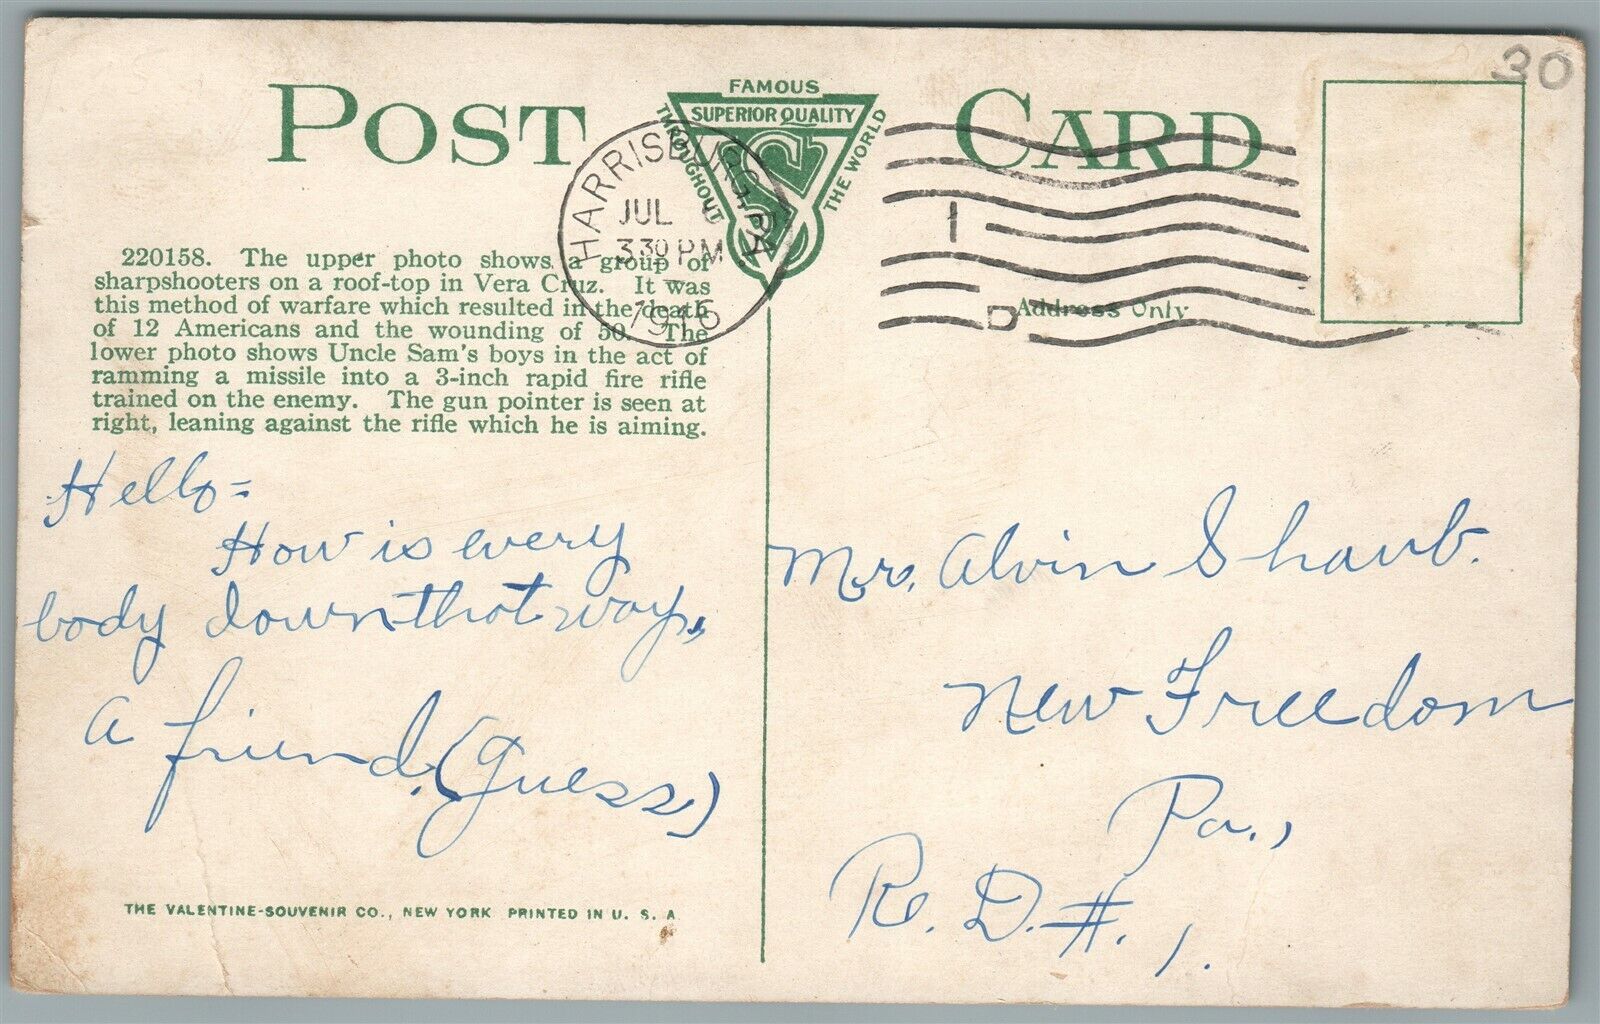 30
POST CARD
FAMOUS
SUPERIOR QUALITY
THROUGHOUT
THE WORLD
HARRISBURG, PA
JUL
3 30 PM
1916
1
D
220158. The upper photo shows a group of
sharpshooters on a roof-top in Vera Cruz. It was
this method of warfare which resulted in the death
of 12 Americans and the wounding of 50. The
lower photo shows Uncle Sam's boys in the act of
ramming a missile into a 3-inch rapid fire rifle
trained on the enemy. The gun pointer is seen at
right, leaning against the rifle which he is aiming.
Address Only
Hello=
How is every
body down that way.,
a friend. (guess)
THE VALENTINE-SOUVENIR CO., NEW YORK PRINTED IN U. S. A
Mr. Alvin Shaub.
New Freedom
Pa.,
R. D. #. 1.